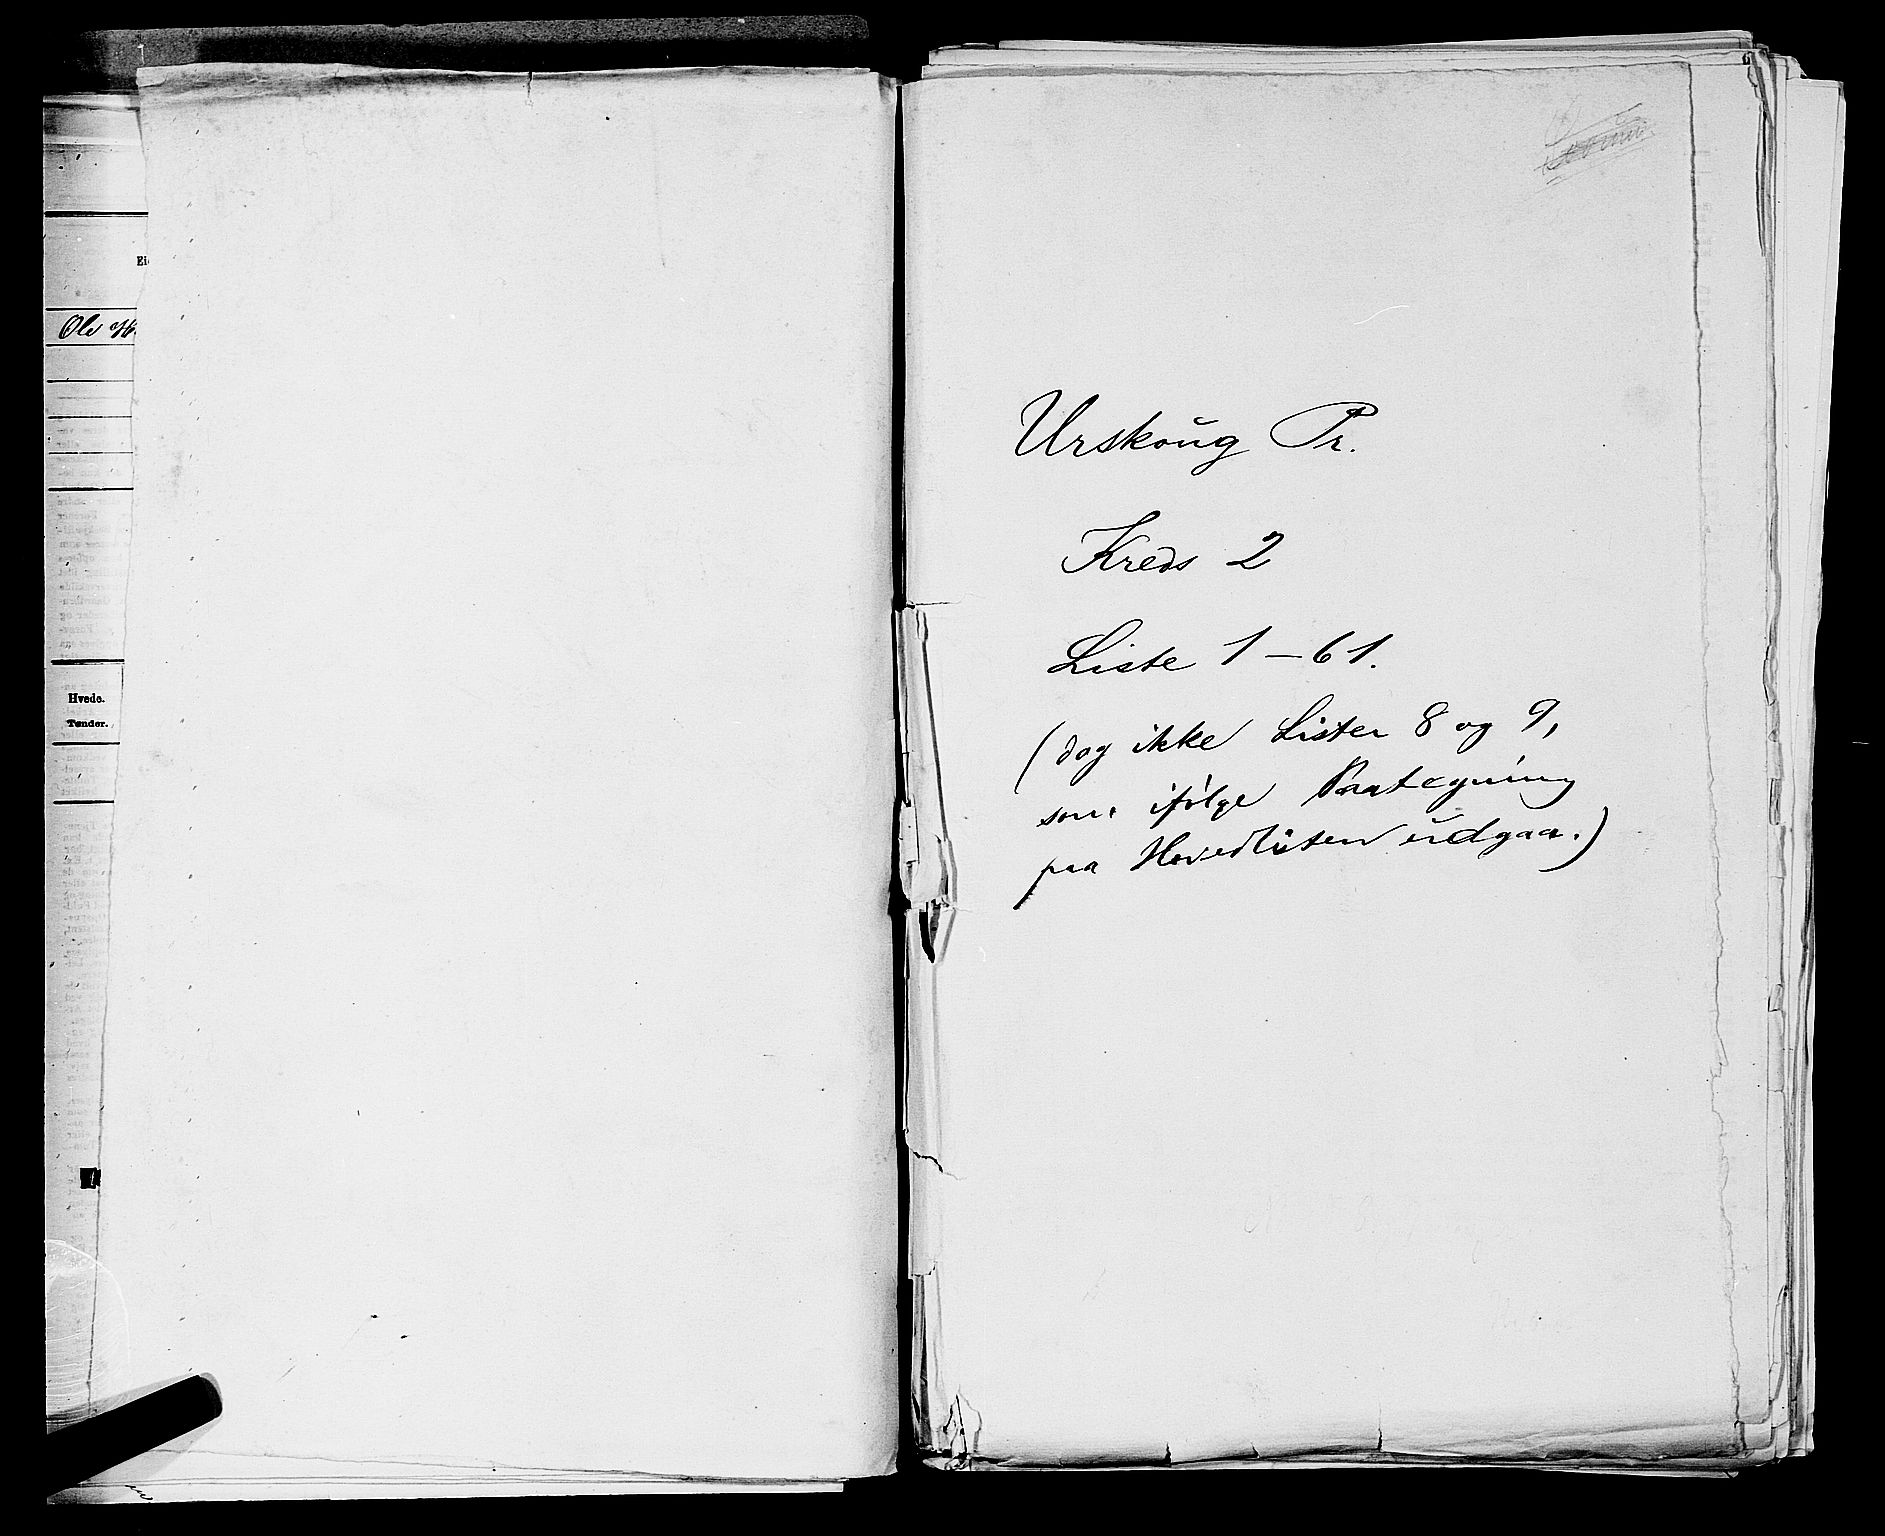 Ole
Hvede.
Tønder.
Urskoŭg Pr.
Kreds 2
Liste 1–61.
(dog ikke Lister 8 og 9,
som ifølge Paategning
paa Hovedlisten ŭdgaar.)